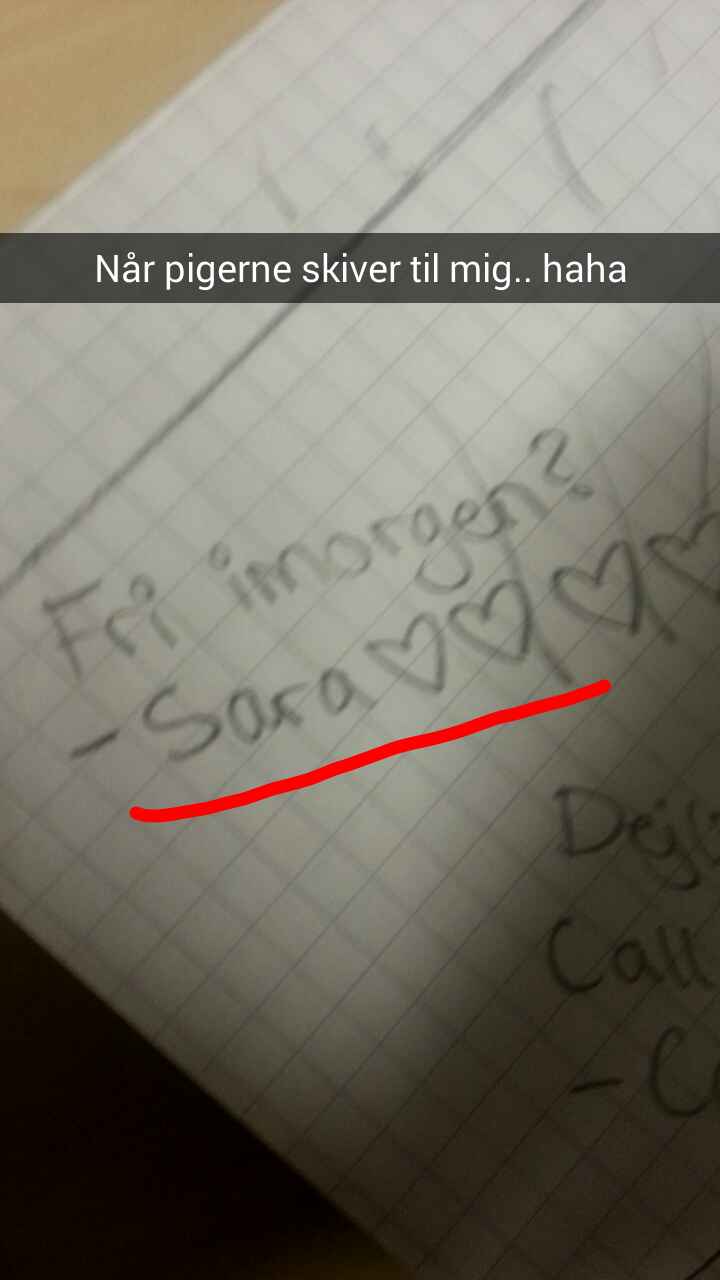 Når pigerne skiver til mig.. haha
Fri imorgen?
-Sara♡♡♡♡
Call